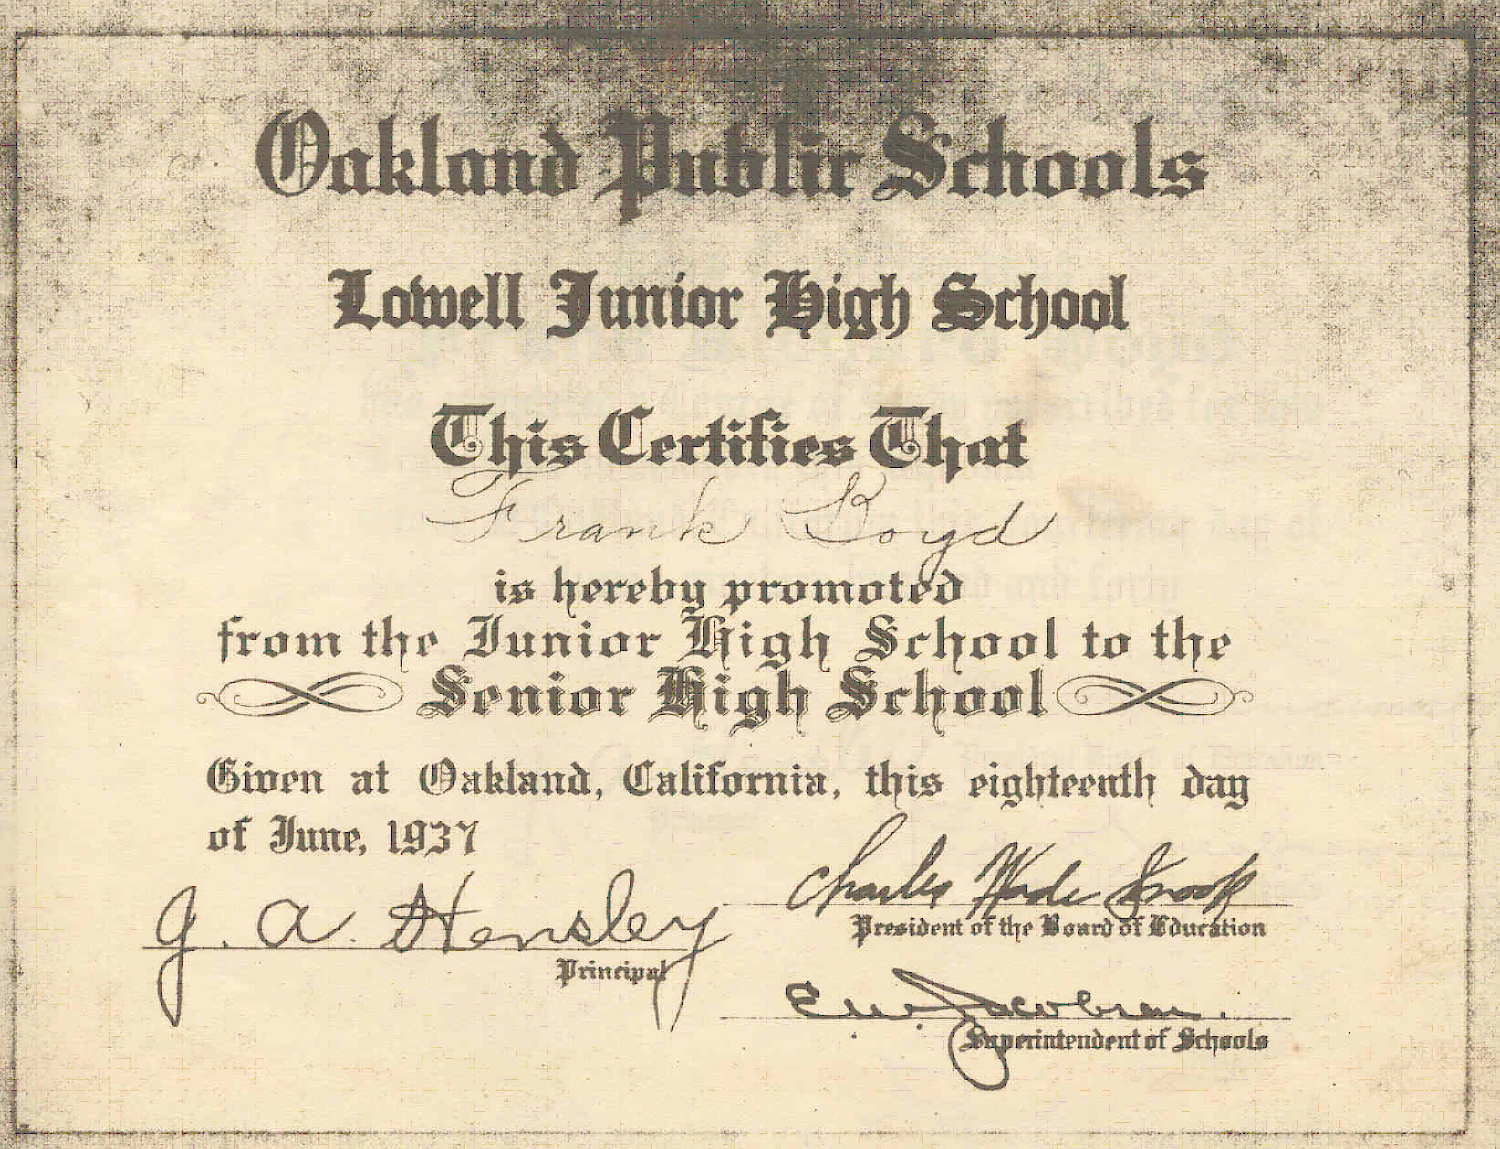 Oakland Public Schools
Lowell Junior High School
This Certifies That
Frank Boyd
is hereby promoted
from the Junior High School to the
Senior High School
Given at Oakland, California, this eighteenth day
of June, 1937
Charles Wade Snook
President of the Board of Education
J. A. Hensley
Principal
E. W. Jacobsen.
Superintendent of Schools